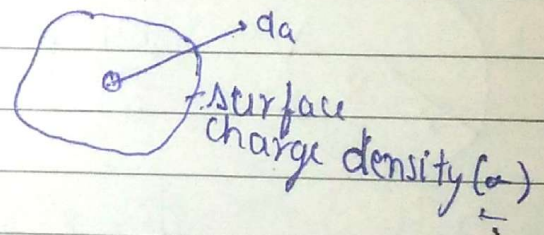 da
surface
charge density (σ)